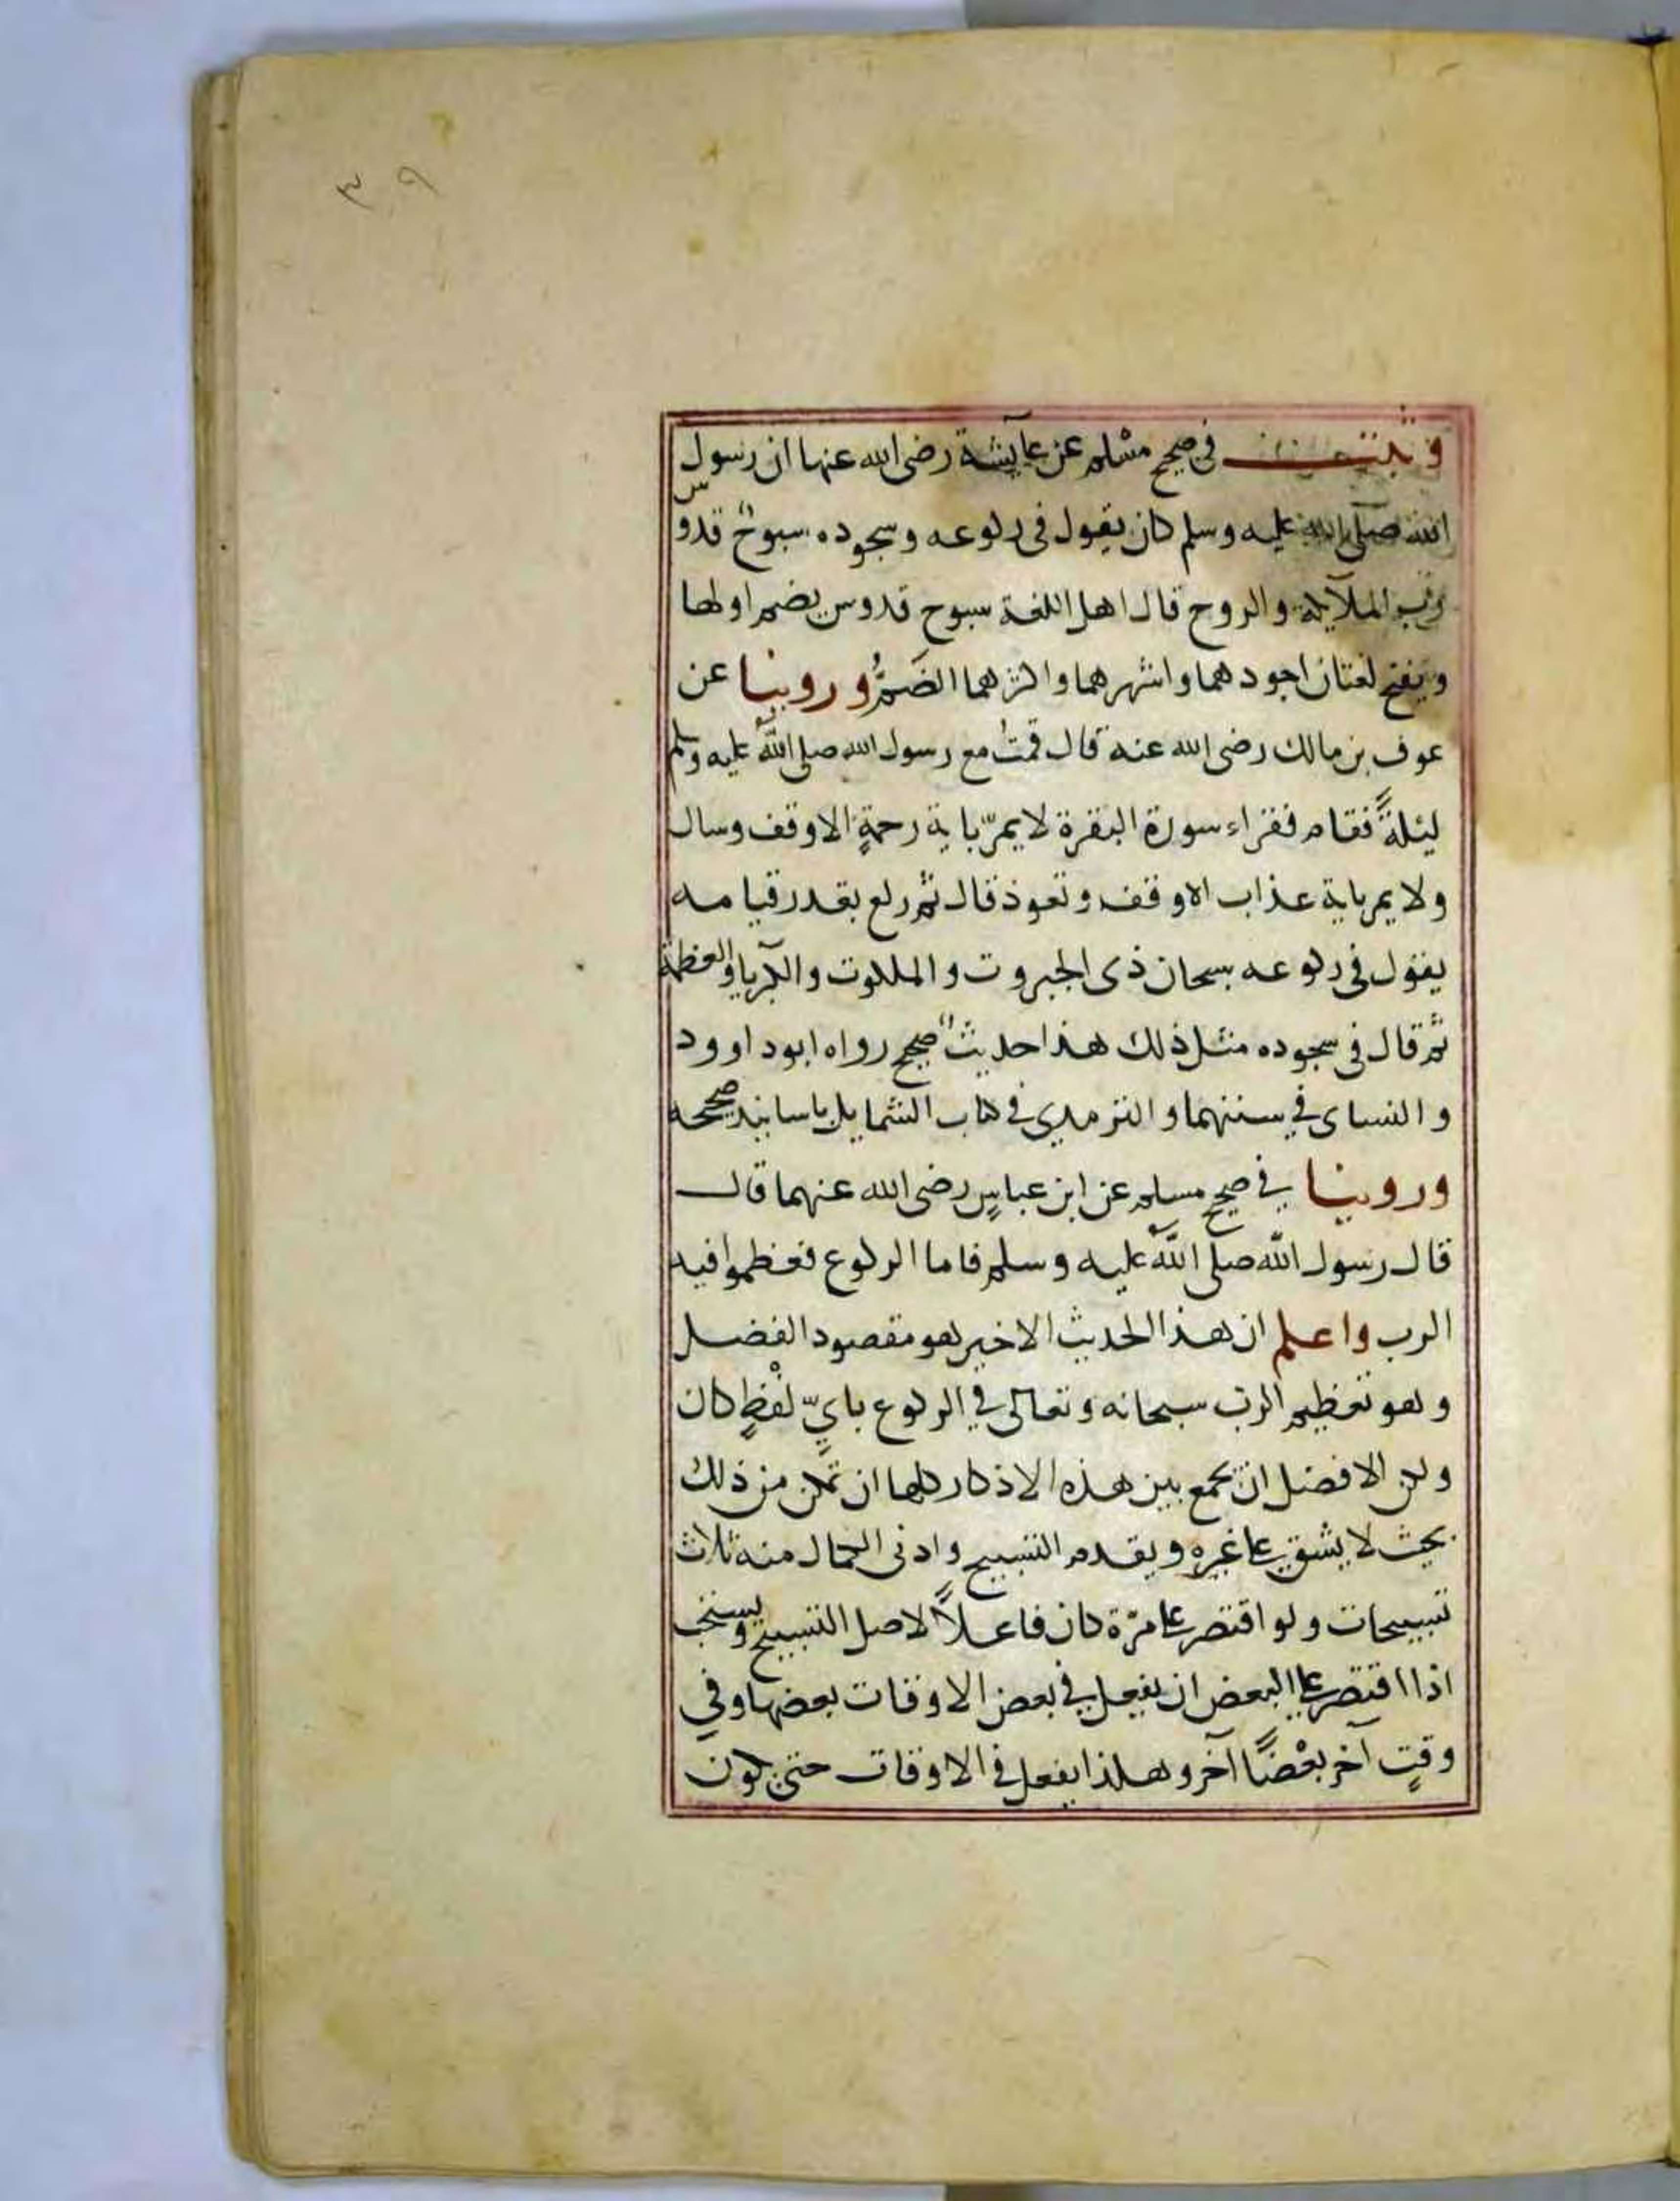 ٣٩
وثبت في صحيح مسلم عن عايشة رضى الله عنها ان رسول
الله صلى الله عليه وسلم كان يقول فى ركوعه وسجوده سبوحٌ قدوس
رب الملآيكة والروح قال اهل اللغة سبوح قدوس بضم اولها
ويفتح لغتان اجودهما واشهرهما واكثرهما الضَمُّ وروينا عن
عوف بن مالك رضى الله عنه قال قمتُ مع رسول الله صلى الله عليه وسلم
ليلةً فقام فقراء سورة البقرة لا يمرّ باية رحمةٍ الا وقف وسال
ولا يمر باية عذاب الا وقف وتعوذ قال ثم ركع بقدر قيامه
يقول فى ركوعه سبحان ذى الجبروت والملكوت والكبرياء والعظمة
ثم قال فى سجوده مثل ذلك هذا حديثٌ صحيح رواه ابو داوود
والنساى في سننهما والترمدي في كتاب الشمايل باسانيد صحيحه
وروينا في صحيح مسلم عن ابن عباسٍ رضى الله عنهما قال
قال رسول الله صلى الله عليه وسلم فاما الركوع فعظموا فيه
الرب واعلم ان هذا الحديث الاخير هو مقصود الفضل
وهو تعظيم الرب سبحانه وتعالى في الركوع بايّ لفْظٍ كان
ولكن الافضل ان يجمع بين هذه الاذكار كلها ان تمكن من ذلك
بحيث لا يشق على غيره ويقدم التسبيح وادنى الكمال منه ثلاث
تسبيحات ولو اقتصر على مرّة كان فاعلاً لاصل التسبيح ويستحب
اذا اقتصر على البعض ان يفعل في بعض الاوقات بعضها وفي
وقتٍ آخر بعْضًا آخر وهكذا يفعل في الاوقات حتى يكون